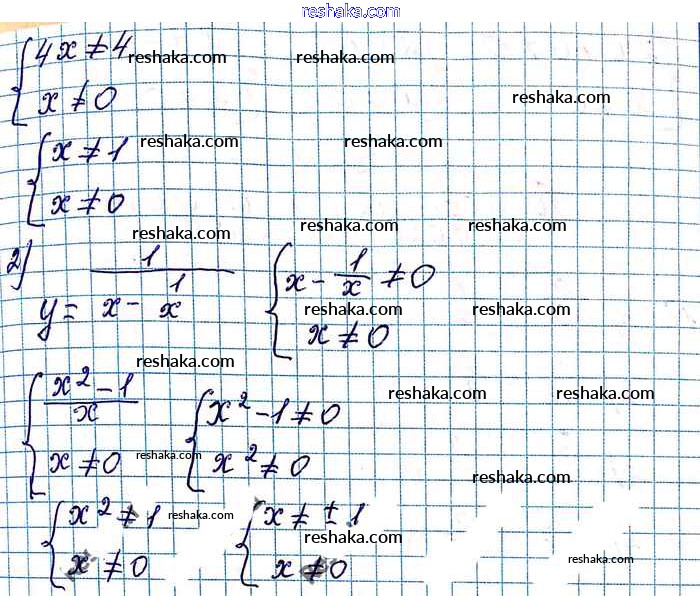 reshaka.com
{4x ≠ 4 reshaka.com reshaka.com
{x ≠ 0 reshaka.com
{x ≠ 1 reshaka.com reshaka.com
{x ≠ 0
reshaka.com reshaka.com reshaka.com
2) y = 1/(x - 1/x) {x - 1/x ≠ 0
{x ≠ 0 reshaka.com reshaka.com
reshaka.com
{(x² - 1)/x {x² - 1 ≠ 0 reshaka.com reshaka.com
{x ≠ 0 reshaka.com {x² ≠ 0
reshaka.com
{x² ≠ 1 reshaka.com {x ≠ ± 1
reshaka.com
{x ≠ 0 {x ≠ 0 reshaka.com